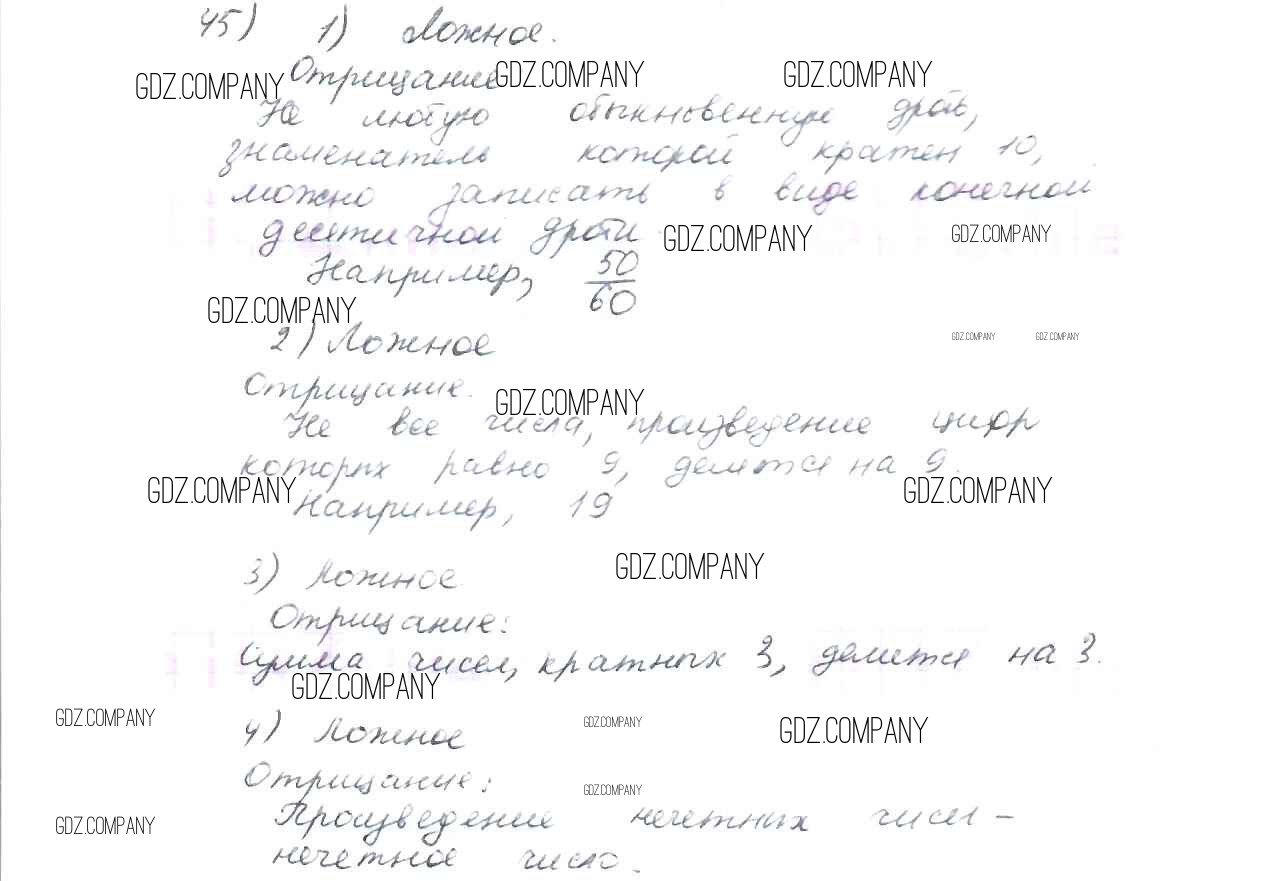 45) 1) Ложное.
Отрицание
GDZ.COMPANY GDZ.COMPANY GDZ.COMPANY
Не любую обыкновенную дробь,
знаменатель которой кратен 10,
можно записать в виде конечной
десятичной дроби
GDZ.COMPANY GDZ.COMPANY
Например, 50/60
GDZ.COMPANY
2) Ложное
GDZ.COMPANY GDZ.COMPANY
Отрицание.
GDZ.COMPANY
Не все числа, произведение цифр
которых равно 9, делятся на 9.
GDZ.COMPANY GDZ.COMPANY
Например, 19
3) Ложное
GDZ.COMPANY
Отрицание:
Сумма чисел, кратных 3, делится на 3.
GDZ.COMPANY
GDZ.COMPANY GDZ.COMPANY GDZ.COMPANY
4) Ложное
Отрицание:
GDZ.COMPANY
Произведение нечетных чисел –
GDZ.COMPANY
нечетное число.